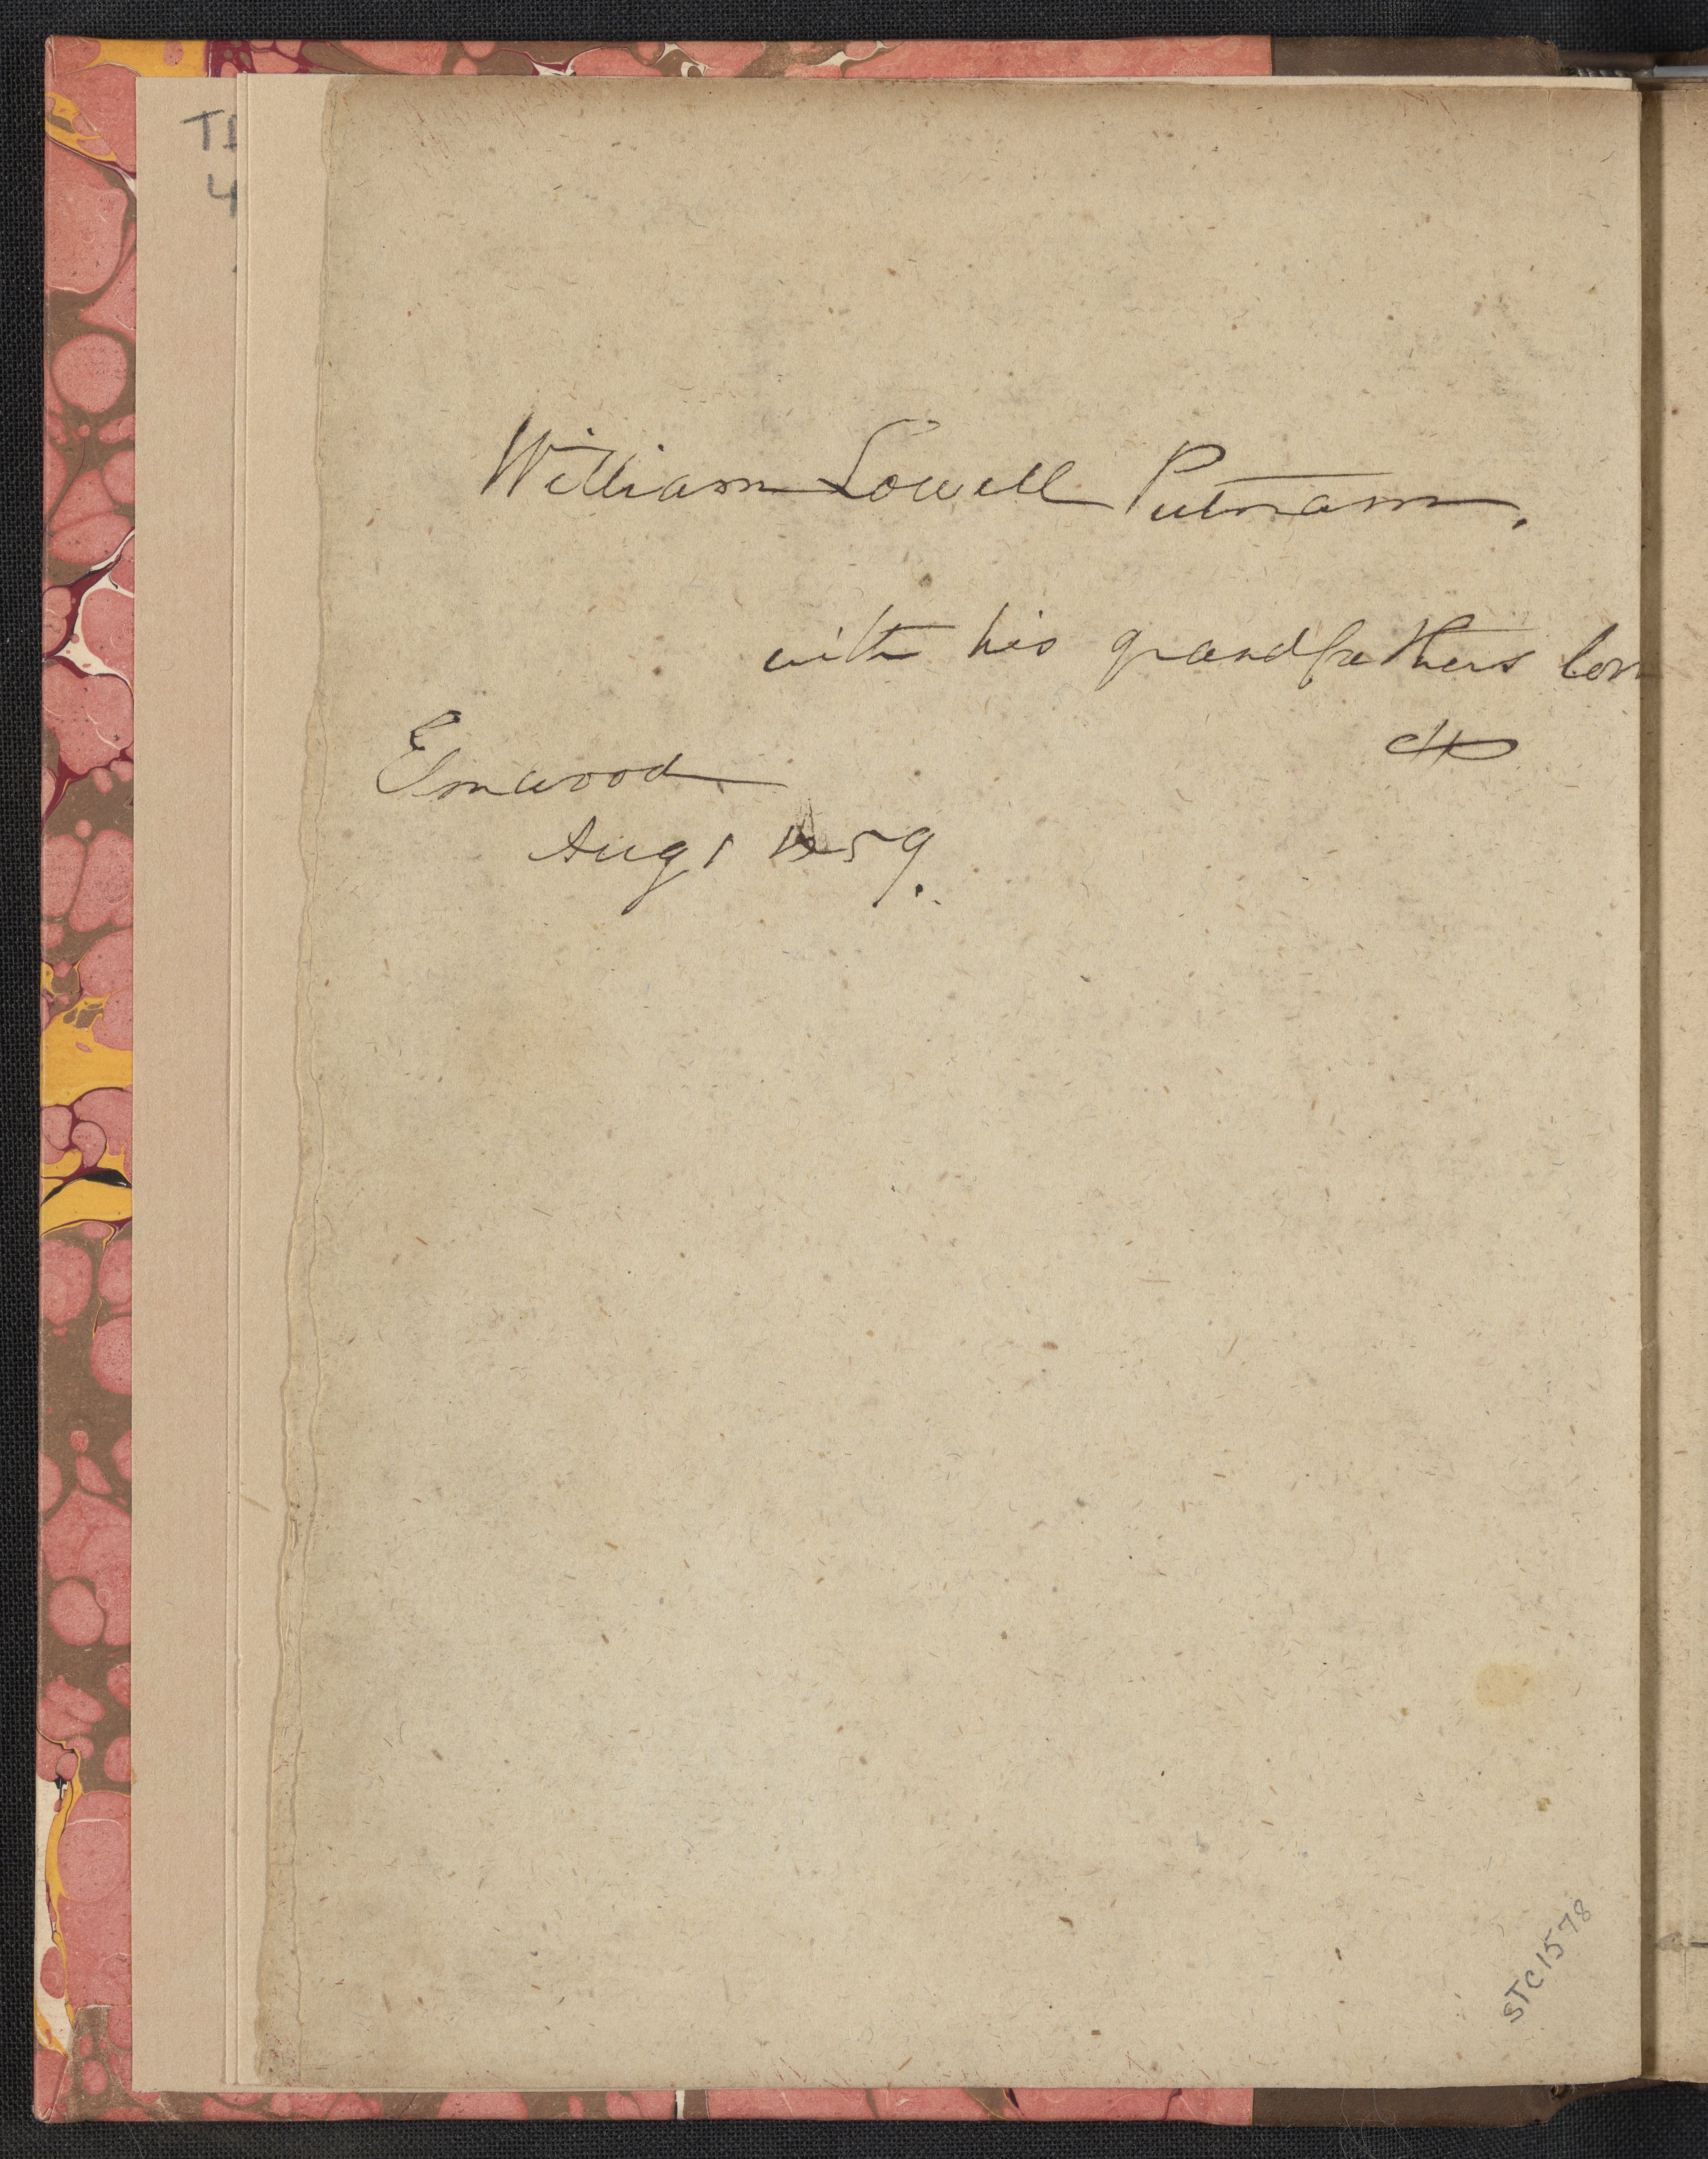 William Lowell Putnam.
with his grandfathers lov
Elmwood
Aug 1 1859.
STC1578